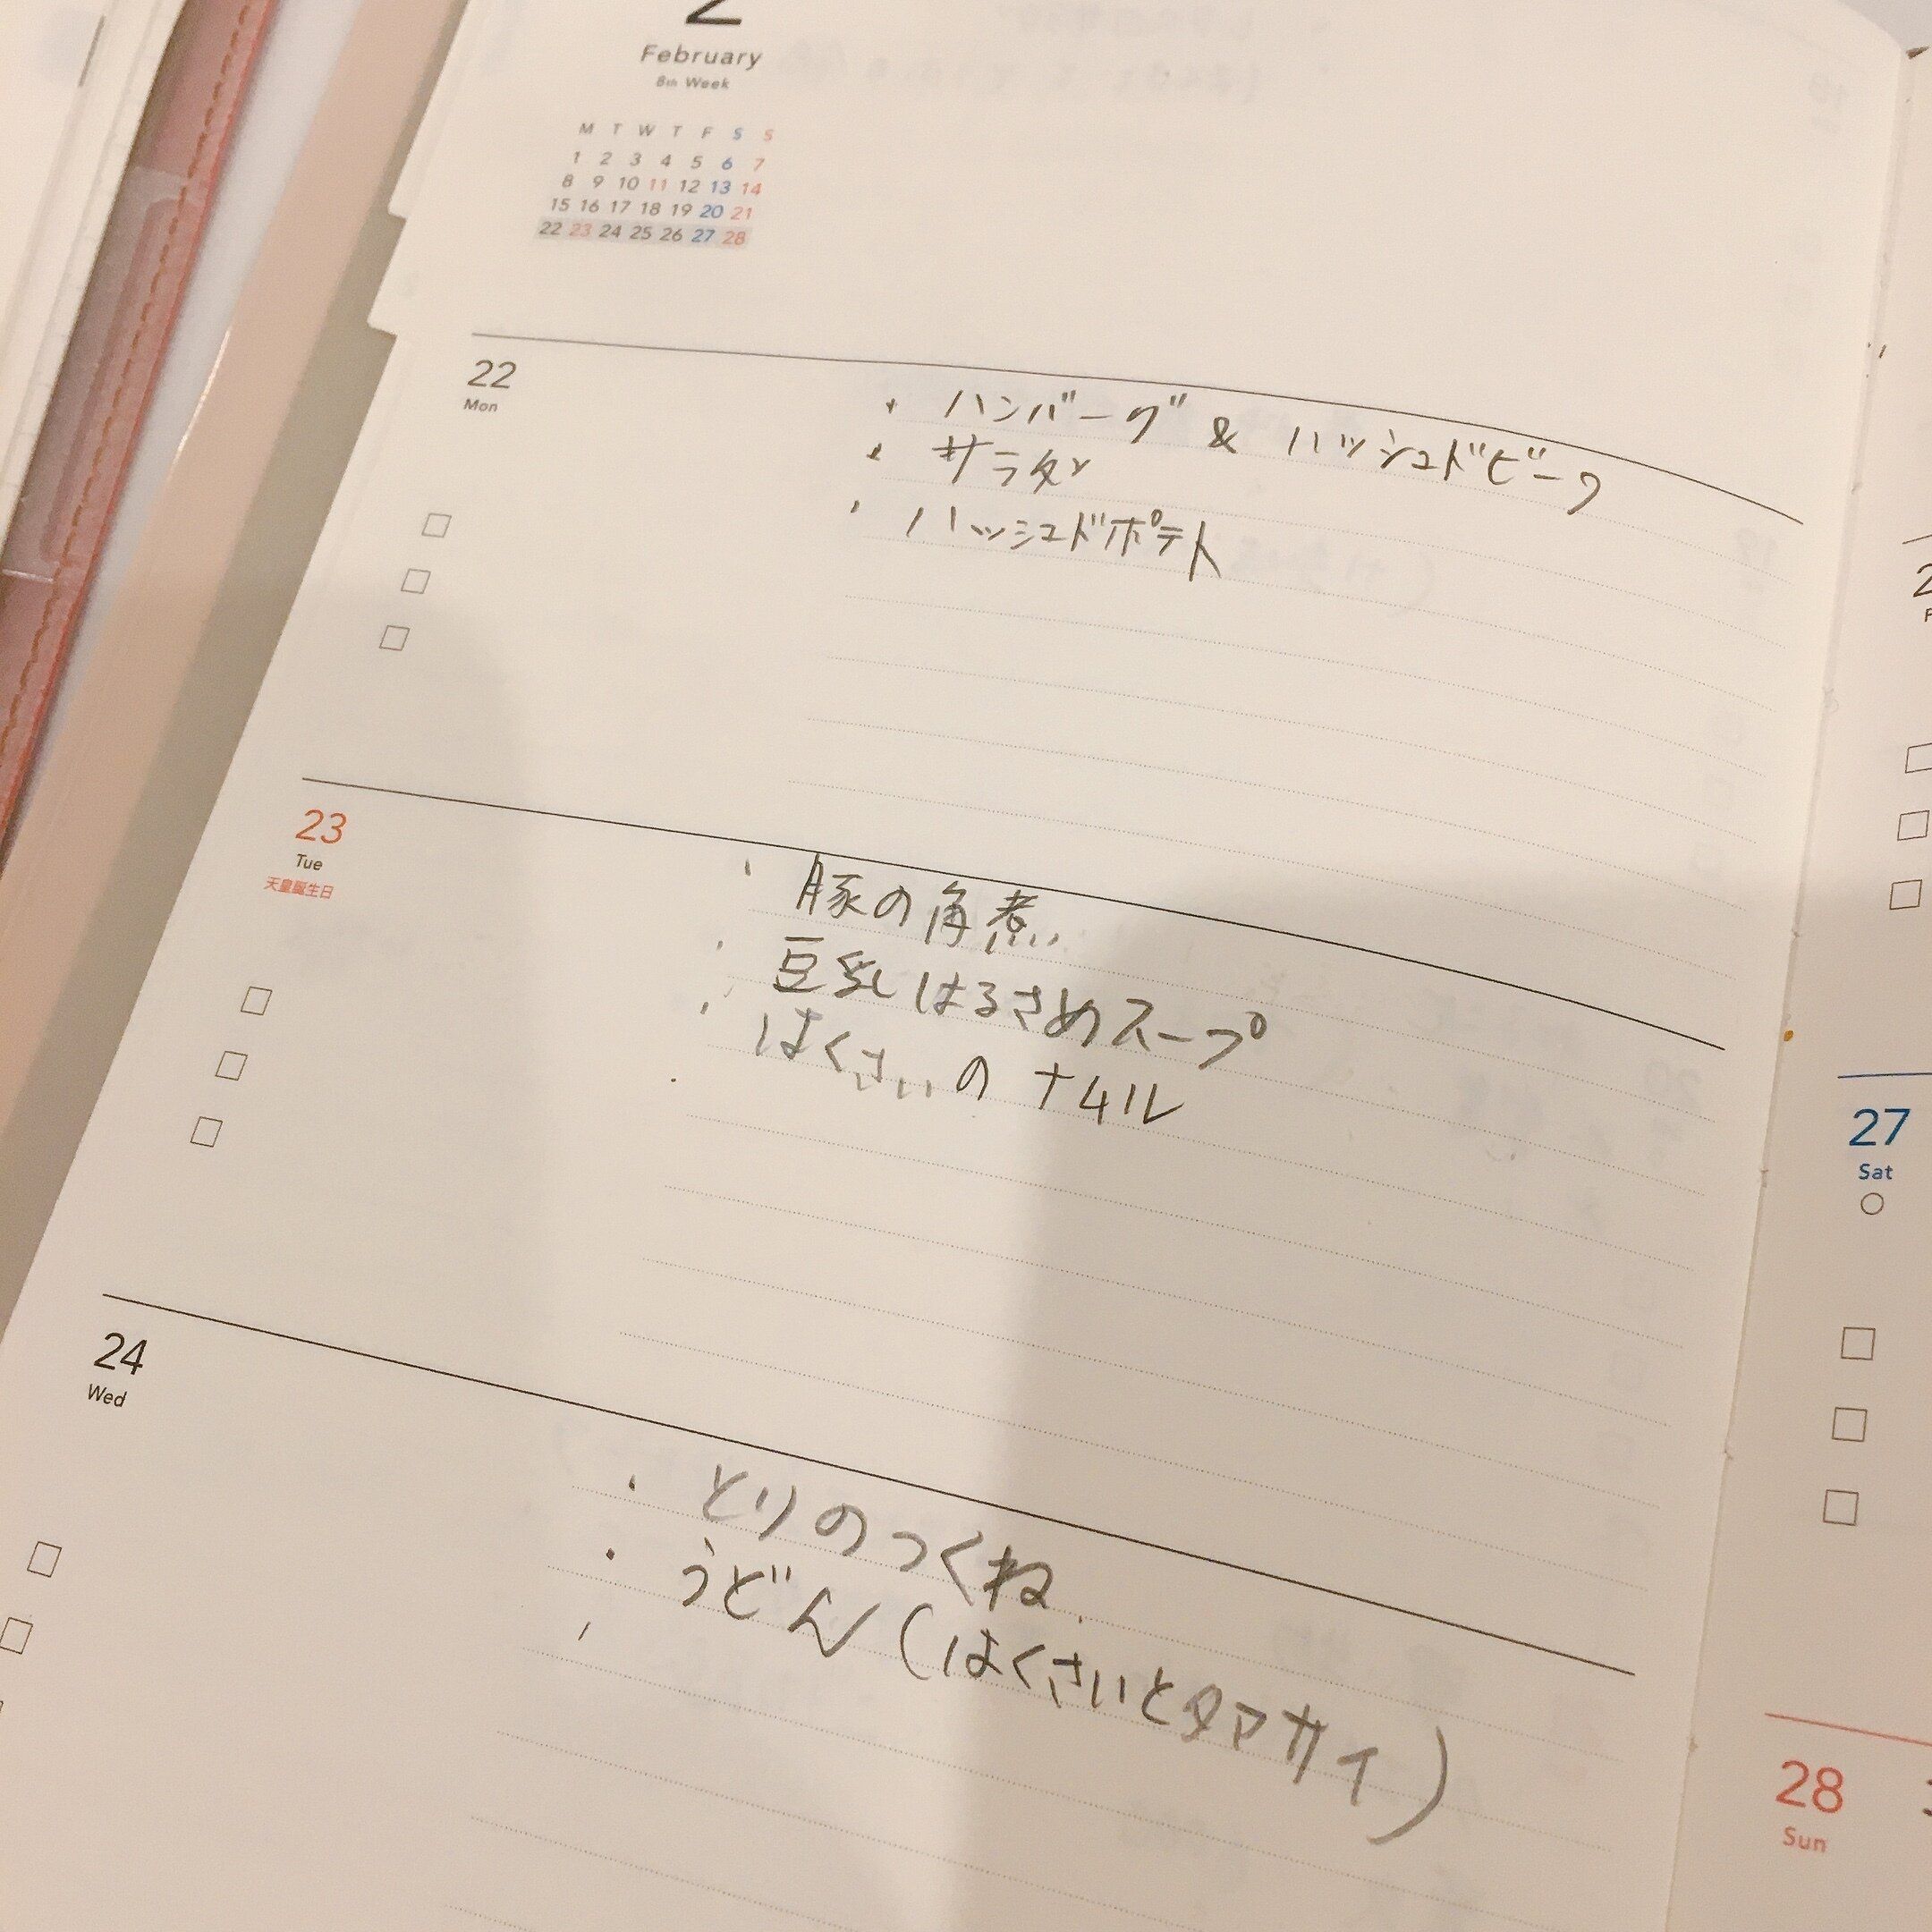 2
February
8th Week
M T W T F S S
1 2 3 4 5 6 7
8 9 10 11 12 13 14
15 16 17 18 19 20 21
22 23 24 25 26 27 28
22
Mon
・ハンバーグ & ハッシュドビーク
・サラダ
・ハッシュドポテト
23
Tue
天皇誕生日
・豚の角煮
・豆乳はるさめスープ
・はくさいのナムル
24
Wed
・とりのつくね
・うどん(はくさいとタマサイ)
27
Sat
28
Sun